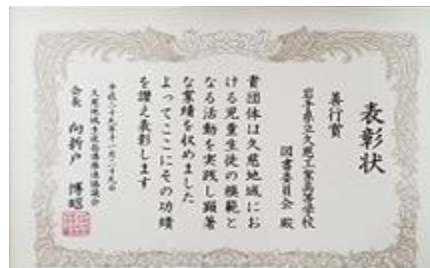 表彰状
善行賞
岩手県立久慈工業高等学校
図書委員会 殿
貴団体は久慈地域にお
ける児童生徒の模範と
なる活動を実践し顕著
な業績を収めました
よってここにその功績
を讃え表彰します
平成二十九年十一月二十九日
久慈地域生徒指導推進協議会
会長 向折戸 博昭